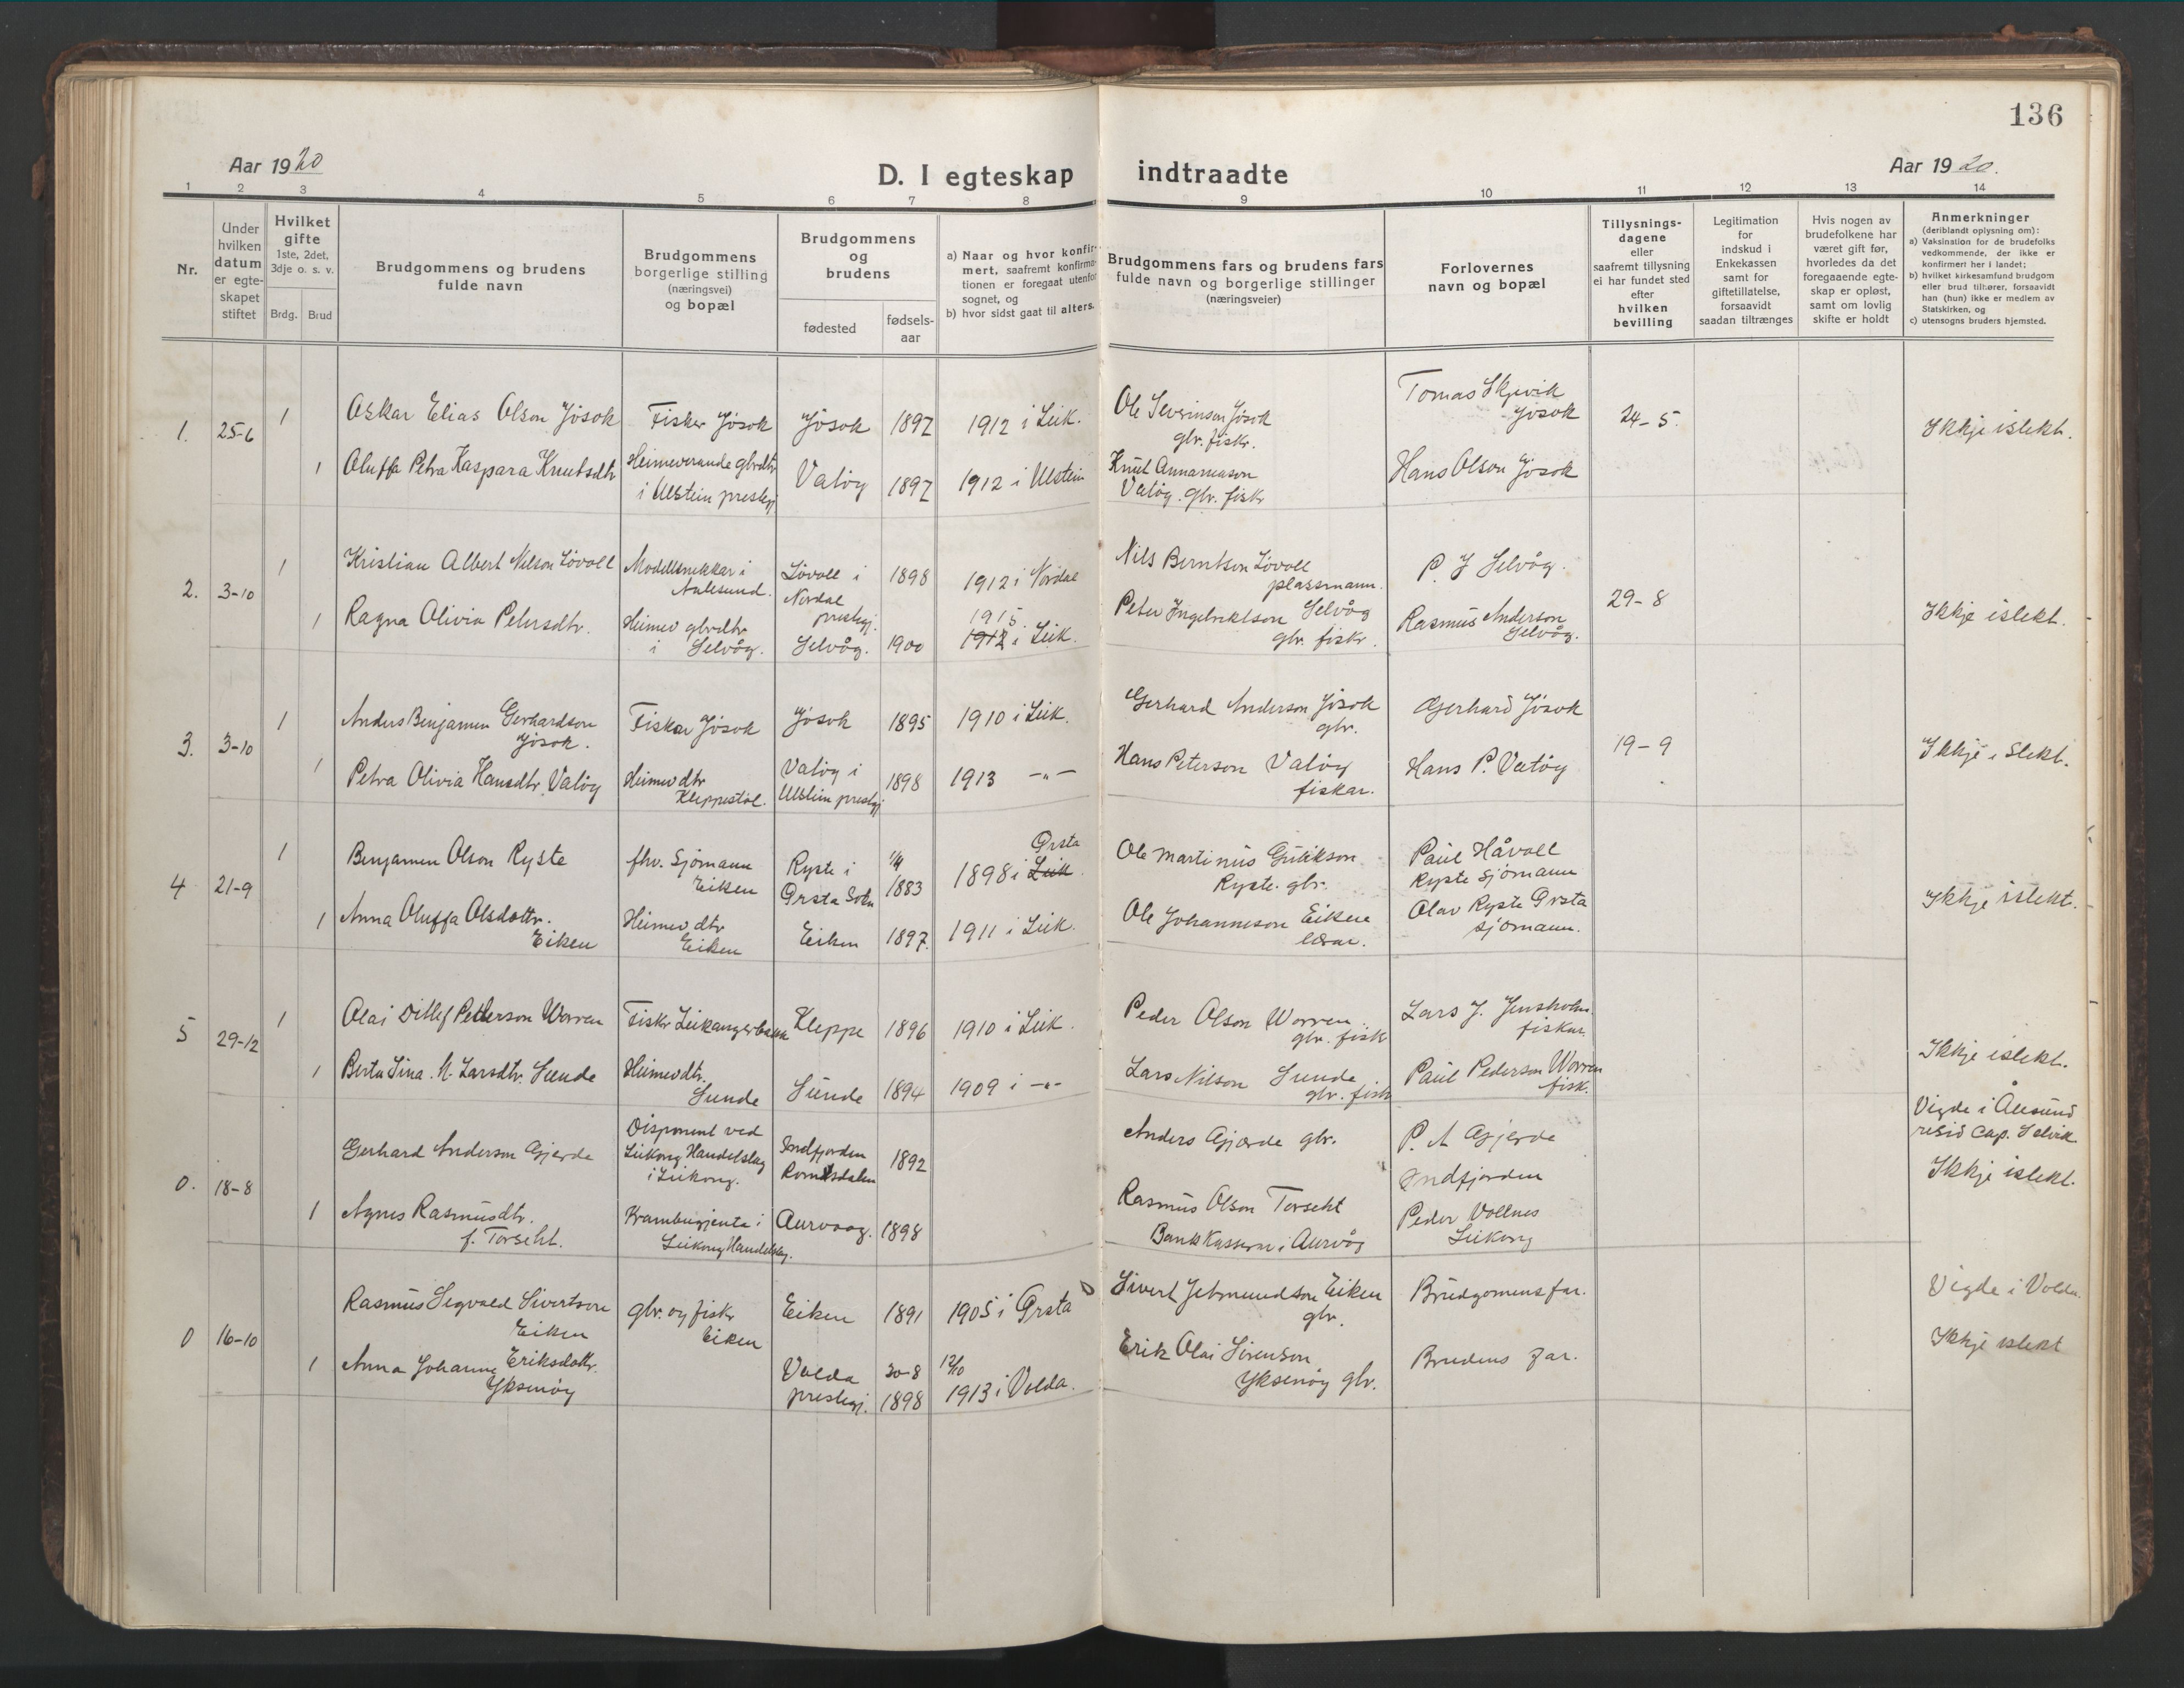 136
Aar 1920
D. I egteskap indtraadte
Aar 1920.
1 2 3 4 5 6 7 8 9 10 11 12 13 14
Nr.
Under hvilken datum er egte-skapet stiftet
Hvilket gifte
1ste, 2det, 3dje o. s. v.
Brdg. Brud
Brudgommens og brudens fulde navn
Brudgommens borgerlige stilling (næringsvei) og bopæl
Brudgommens og brudens
fødested
fødsels-aar
a) Naar og hvor konfir-mert, saafremt konfirma-tionen er foregaat utenfor sognet, og
b) hvor sidst gaat til alters.
Brudgommens fars og brudens fars fulde navn og borgerlige stillinger (næringsveier)
Forlovernes navn og bopæl
Tillysnings-dagene eller saafremt tillysning ei har fundet sted efter hvilken bevilling
Legitimation for indskud i Enkekassen samt for giftetillatelse, forsaavidt saadan tiltrænges
Hvis nogen av brudefolkene har været gift før, hvorledes da det foregaaende egte-skap er opløst, samt om lovlig skifte er holdt
Anmerkninger
(deriblandt oplysning om):
a) Vaksination for de brudefolks vedkommende, der ikke er konfirmert her i landet;
b) hvilket kirkesamfund brudgom eller brud tilhører, forsaavidt han (hun) ikke er medlem av Statskirken, og
c) utensogns bruders hjemsted.
1. 25-6 1 Oskar Elias Olson Jösok Fisker Jösok Jösok 1897 1912 i Leik. Ole Severinson Jösok glr. fiskr. Tomas Skjevik Jösok 24-5. Ikkje islekt.
1 Oluffa Petra Kaspara Knutsdtr Heimeverande glrdtr i Ulstein prestegj Vatöy 1897 1912 i Ulstein Knut Vatöy. glr. fiskr Hans Olson Jösok
2. 3-10 1 Kristian Albert Nilson Lövoll Modellsnekkar i Aalesund. Lövoll i Nordal prestegj. 1898 1912 i Nordal Nils Berntson Lövoll plassmann. P. J Selvåg. 29-8 Ikkje islekt.
1 Ragna Olivia Petersdtr. Heimev glrdtr i Selvåg. Selvåg. 1900 1915. 1912 i Leik. Peter Ingebriktson Selvåg glr. fiskr. Rasmus Anderson Selvåg.
3. 3-10 1 Anders Benjamen Gerhardson Jösok. Fiskar Jösok Jösok 1895 1910 i Leik. Gerhard Anderson Jösok glr. Gerhard Jösok 19-9 Ikkje i slekt.
1 Petra Olivia Hansdtr. Vatöy Heimev dtr Kleppestöl. Vatöy i Ulstein prestegj 1898 1913 -"- Hans Peterson Vatöy fiskar. Hans P. Vatöy
4 21-9 1 Benjamen Olson Ryste fhv. Sjömann Eiken Ryste i Örsta Sokn 1/4 1883 1898 i Leik Örsta Ole Martinus Gulikson Ryste. glr. Paul Håvoll Ryste Sjömann Ikkje islekt.
1 Anna Oluffa Olsdottr. Eiken Heimev dtr Eiken Eiken 1897. 1911 i Leik. Ole Johanneson Eiken lærar. Olav Ryste Örsta Sjömann.
5 29-12 1 Olai Ditlef Petterson Worren Fiskr Leikanger Kleppe 1896 1910 i Leik. Peder Olson Worren glr. fisk Lars J. Jensholm fiskar. Ikkje islekt.
1 Berta Sina. M. Larsdtr. Sunde Heimevdtr. Sunde Sunde 1894 1909 i -"- Lars Nilson Sunde glr. fisk Paul Pederson Worren fisk.
0. 18-8 Gerhard Anderson Gjerde Disponent ved Leikong Handelslag i Leikong. Indfjorden Romsdalen 1892 Anders Gjærde glr. P. A Gjerde Indfjorden Vigde i Ålesund resid Cap. Selvik Ikkje islekt.
1 Agnes Rasmusdtr. f. Torseht. Krambugjenta i Leikong Handelslag. Aurvaag. 1898 Rasmus Olson Torseht Bankkasserar i Aurvåg Peder Vollnes Leikong
0 16-10 Rasmus Segvald Sivertson Eiken glr. og fiskr Eiken Eiken 1891 1905 i Örsta Sivert Jetmundson Eiken glr. Brudgomens far. Vigde i Volda. Ikkje islekt
1 Anna Johanne Eriksdottr. Yksenöy Volda prestegj. 30-8 1898 12/10 1913 i Volda. Erik Olai Sivenson Yksenöy glr. Brudens far.